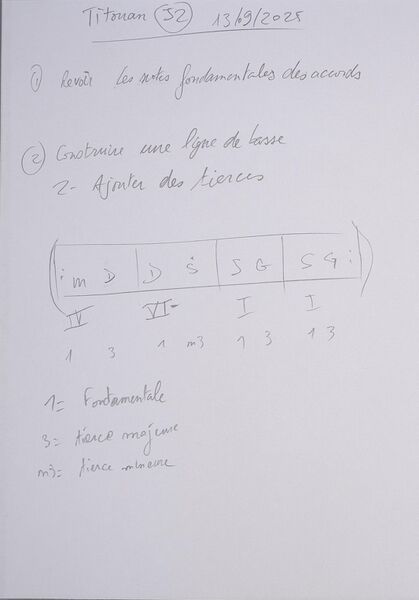 Titouan S2 13/09/2025
① Revoir les notes fondamentales des accords
② Construire une ligne de basse
2- Ajouter des tierces
: m D | D S | S G | S G :
IV VI- I I
1 3 1 m3 1 3 1 3
1= Fondamentale
3= tierce majeure
m3= tierce mineure